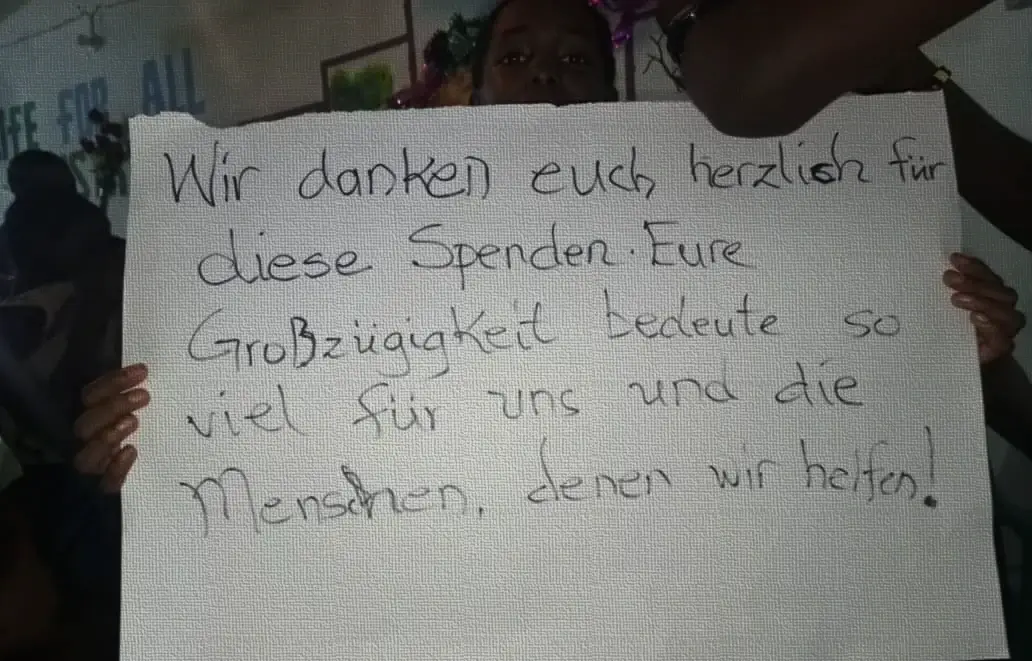 IFE FOR ALL
Wir danken euch herzlich für
diese Spenden. Eure
Großzügigkeit bedeute so
viel für uns und die
Menschen, denen wir helfen!